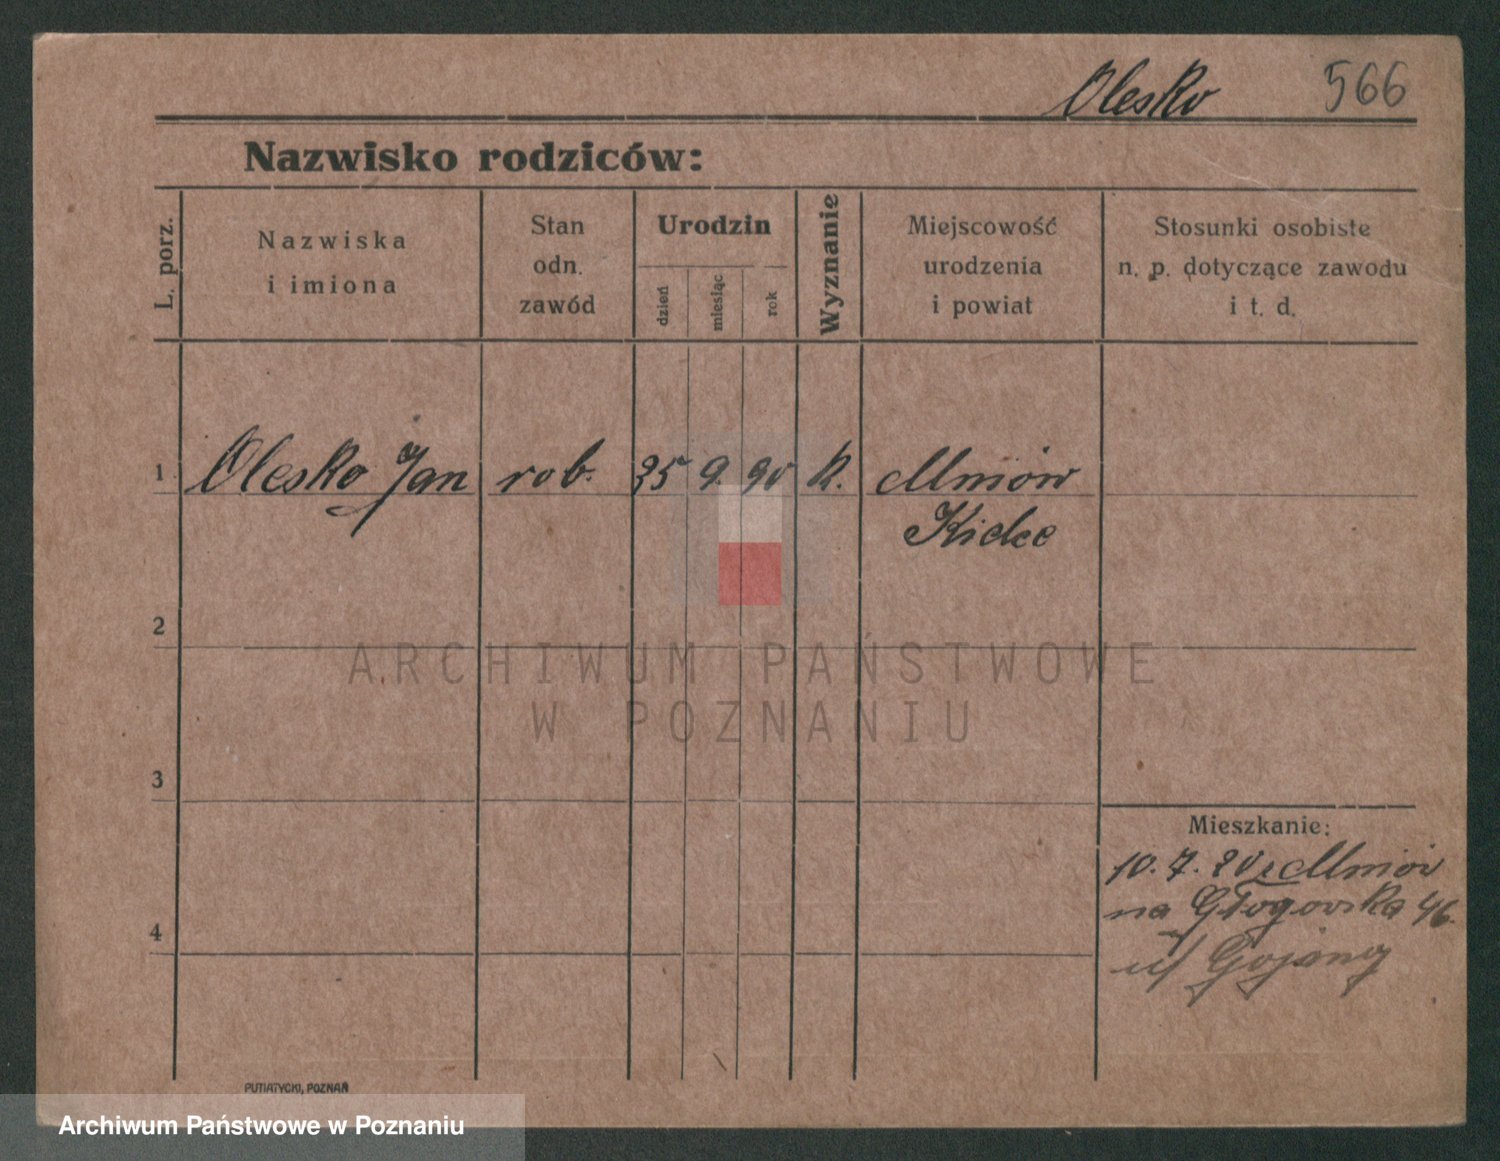 Olesko 566
Nazwisko rodziców:
L. porz.
Nazwiska
i imiona
Stan
odn.
zawód
Urodzin
dzień
miesiąc
rok
Wyznanie
Miejscowość
urodzenia
i powiat
Stosunki osobiste
n. p. dotyczące zawodu
i t. d.
1 Olesko Jan rob. 25 9. 90 k. Mniów
Kielce
2
3
4
Mieszkanie:
10. 7. 20 z Mniów
na Głogowska 46.
u/
ARCHIWUM PAŃSTWOWE
W POZNANIU
PUTIATYCKI, POZNAŃ
Archiwum Państwowe w Poznaniu